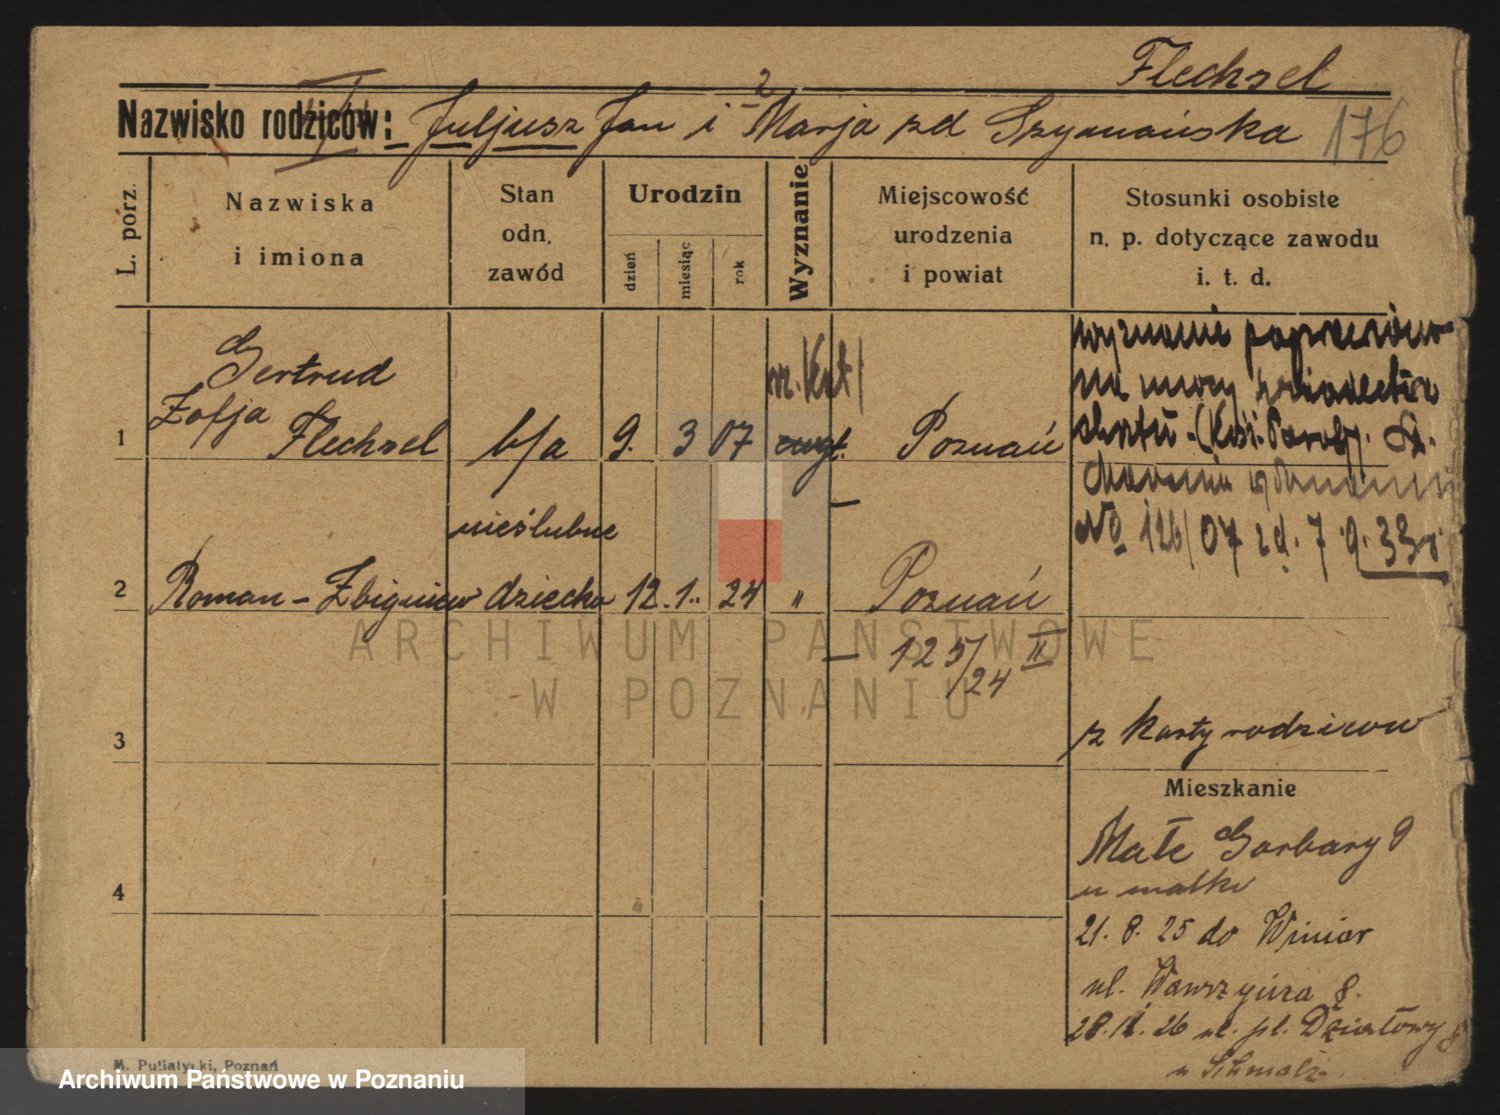 Flechsel
Nazwisko rodziców: Juljusz Jan i 2 Marja zd Szymańska 176
L. porz.
Nazwiska
i imiona
Stan
odn.
zawód
Urodzin
dzień
miesiąc
rok
Wyznanie
Miejscowość
urodzenia
i powiat
Stosunki osobiste
n. p. dotyczące zawodu
i. t. d.
1
Gertrud
Zofja
Flechsel
b/a
9. 3 07
rz. kat
ewgl.
Poznań
wyznanie
na mocy świadectwa
chrztu
No 126/07 zd. 7.9.33r.
2
Roman - Zbigniew
nieślubne
dziecko
12. 1. 24
"
Poznań
125/24 II
3
z karty rodziców
Mieszkanie
4
Małe Garbary 9
u matki
21. 8. 25 do Winiar
ul. Wawrzyńca 8.
28. 11. 26 ul. pl. Działowy 8
u Schmolz
M. Putiatycki, Poznań
ARCHIWUM PAŃSTWOWE
W POZNANIU
Archiwum Państwowe w Poznaniu